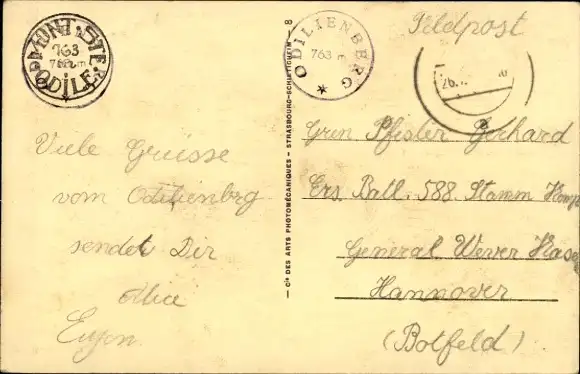 MONT STE ODILE
763
763 m
ODILIENBERG
763 m
Feldpost
26.
Viele Grüsse
vom Odilienberg
sendet Dir
Eugen
Cie DES ARTS PHOTOMÉCANIQUES - STRASBOURG-SCHILTIGHEIM - 8
Gren Pfisler Gerhard
Ers. Batl. 588. Stamm Komp
General Wever Kase
Hannover
(Botfeld)